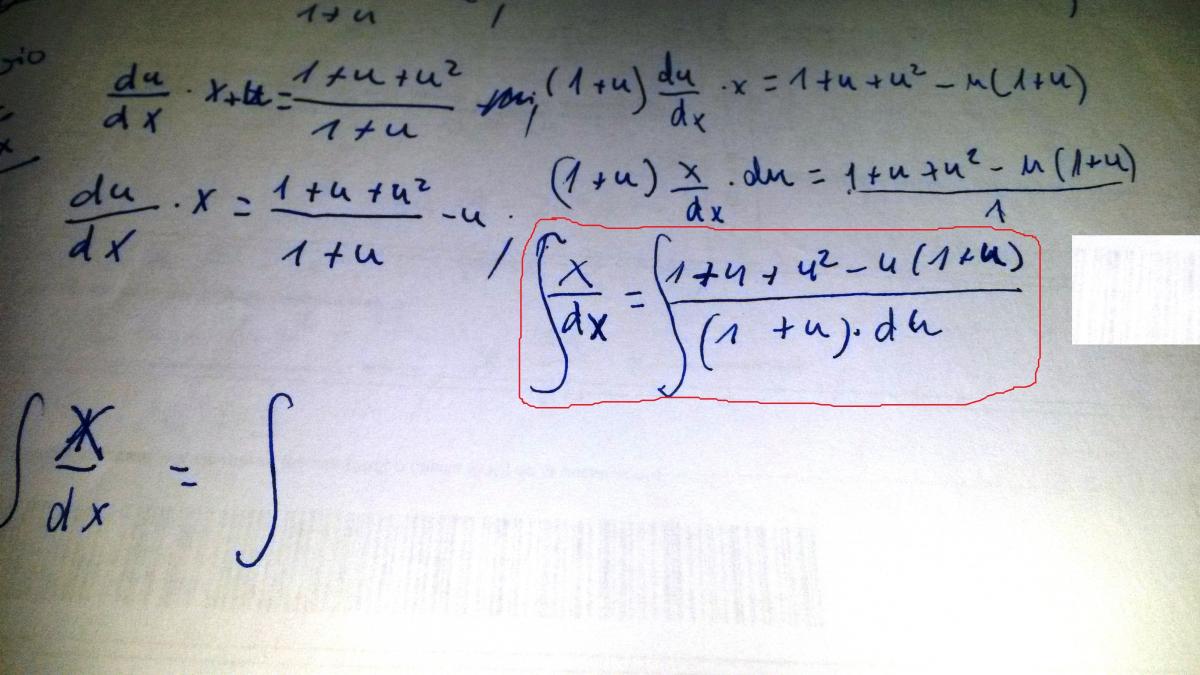 1+u /
du/dx · x+u = (1+u+u²)/(1+u) , (1+u) du/dx · x = 1+u+u² - u(1+u)
du/dx · x = (1+u+u²)/(1+u) - u . / (1+u) x/dx · du = (1+u+u² - u(1+u))/1
∫ x/dx = ∫ (1+u+u² - u(1+u))/((1+u)· du)
∫ x/dx = ∫